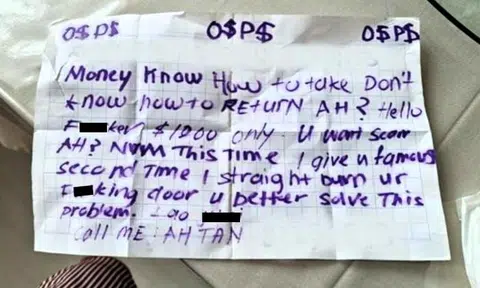 O$P$ O$P$ O$P$
Money Know How to take Don't
know how to RETURN AH? Hello
F ker $1000 only. U want scam
AH? NVM This Time I give u famous
second Time I straight burn ur
F king door u better solve This
problem.
call ME: AH TAN